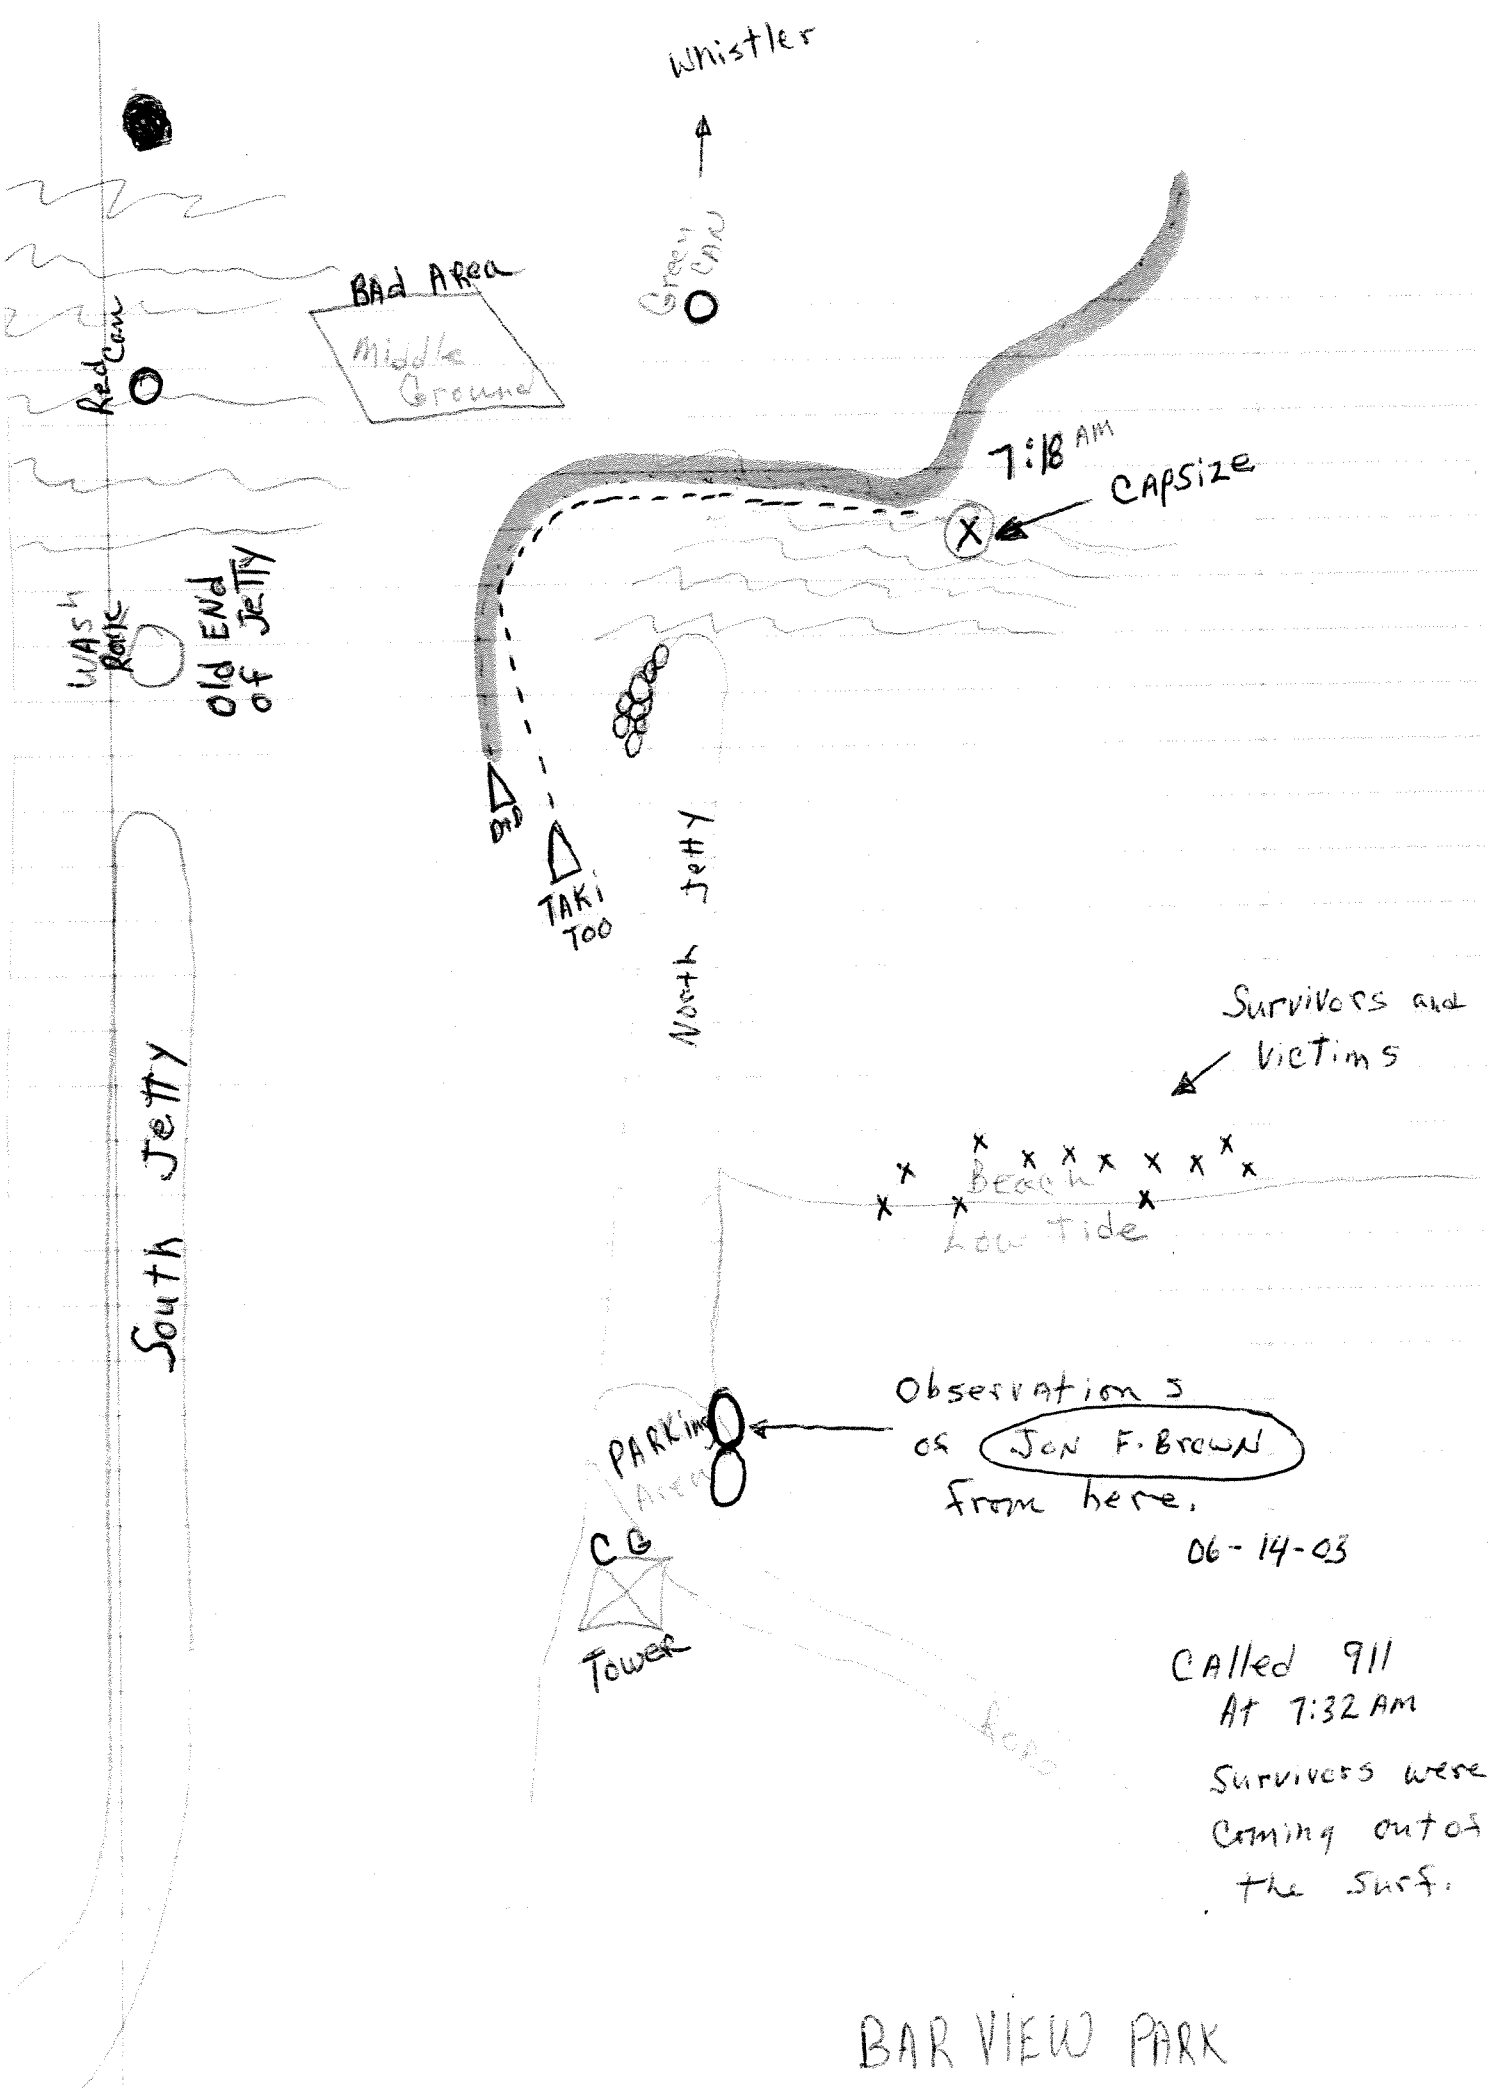 Whistler
Green
CAN
BAd AREA
Middle
Ground
Red
Can
7:18 AM
CAPSIZE
WASh
Rock
Old ENd
of JeTTY
D&D
TAKi
TOO
North Jetty
South Jetty
Survivors and
Victims
Beach
Low Tide
Observations
of JON F. BROWN
from here.
06-14-03
PARKing
Area
CG
Tower
Road
CAlled 911
At 7:32 AM
Survivors were
Coming out of
the surf.
BAR VIEW PARK